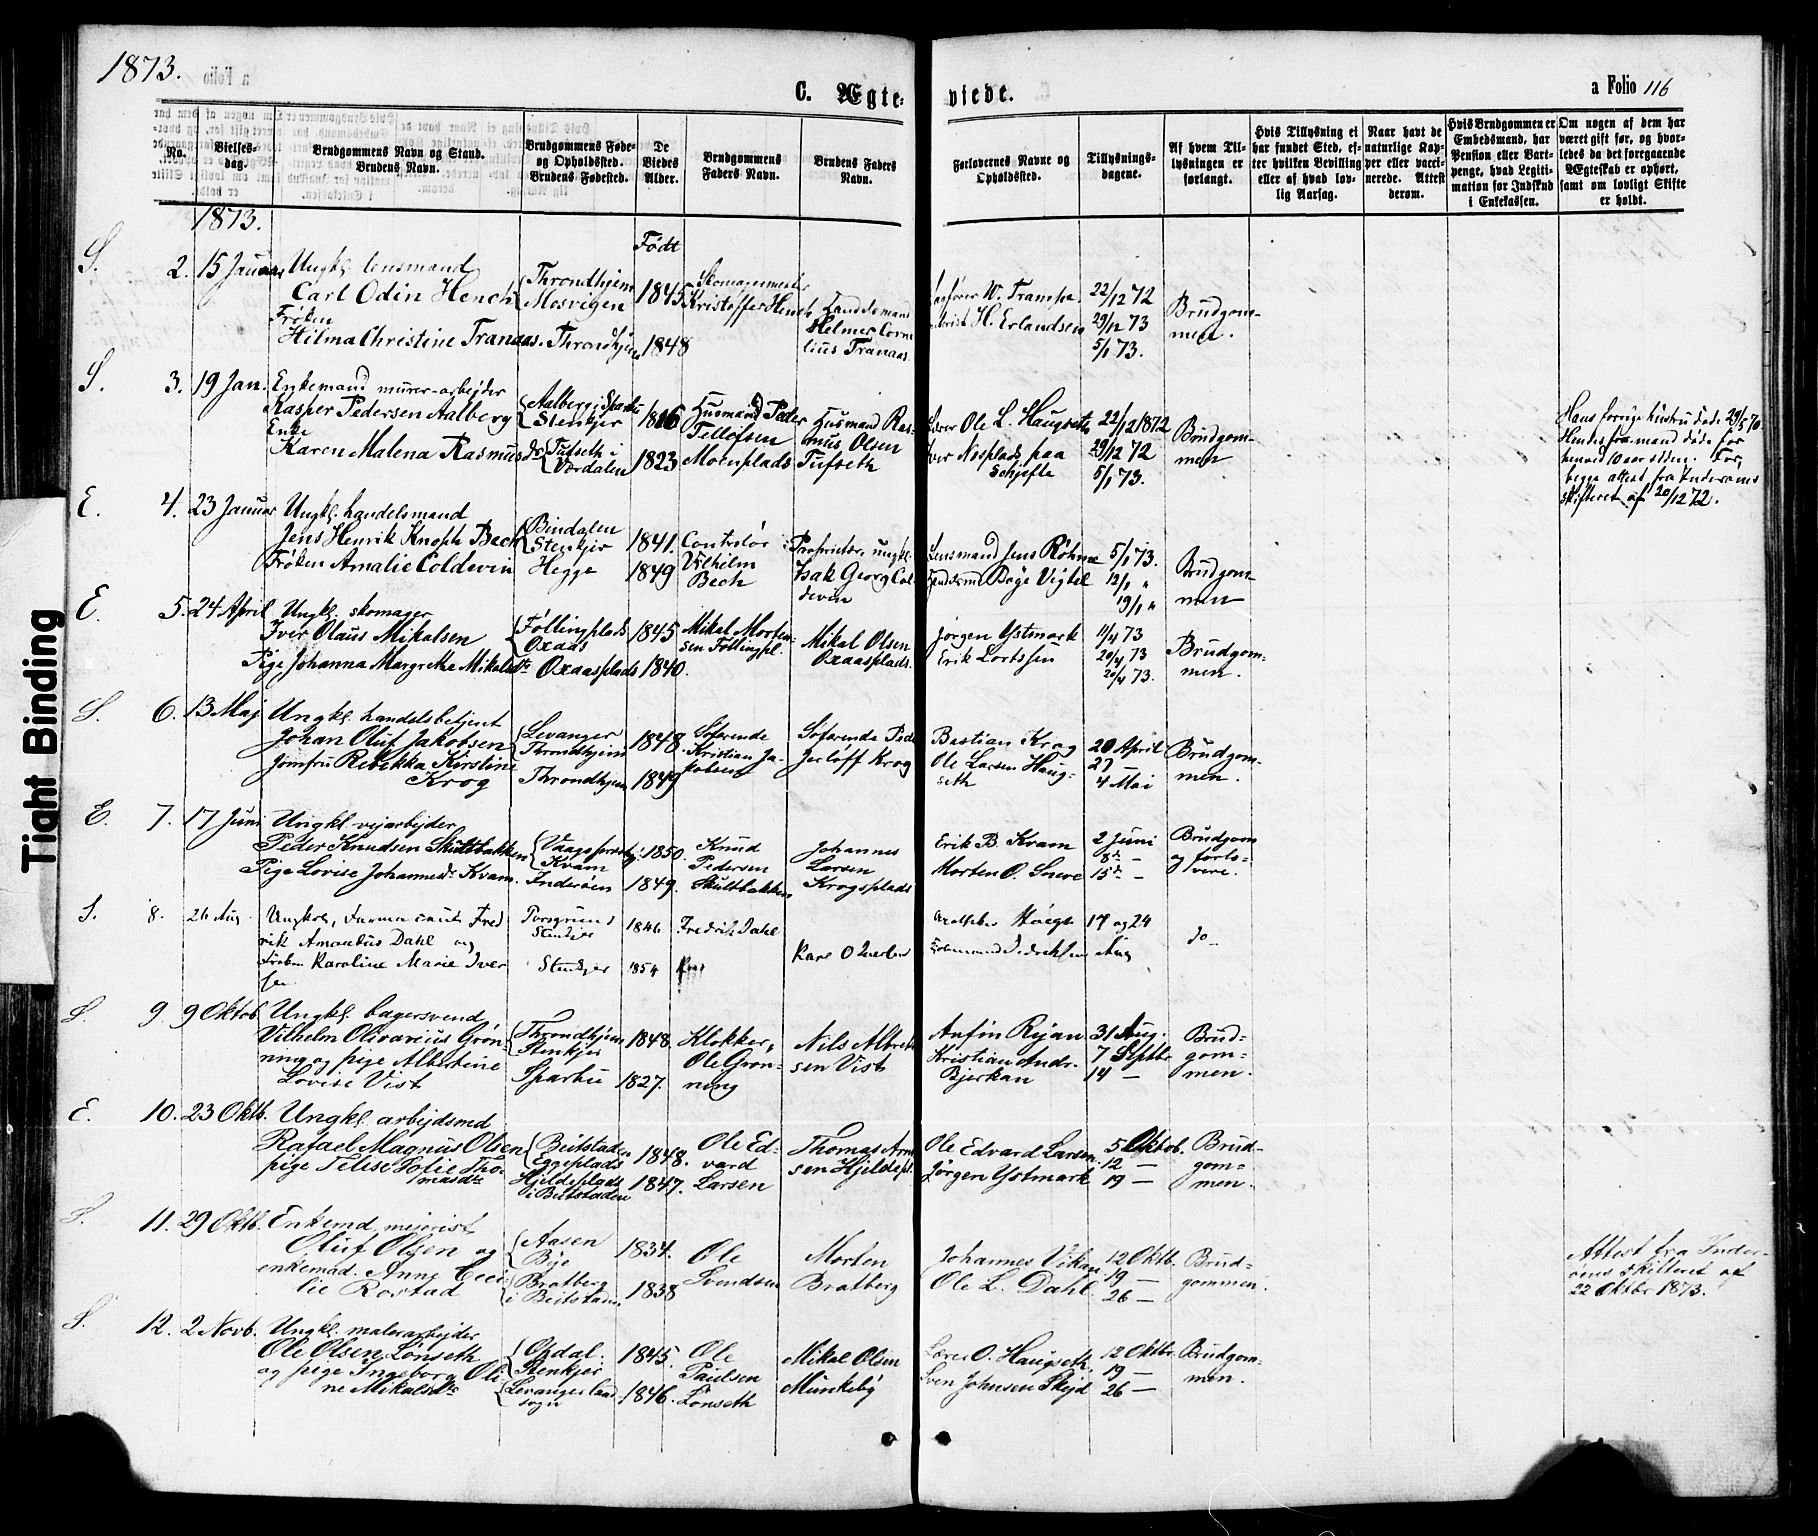 1873.
C. Ægte-viede.
a Folio 116
No.
Vielses-dag.
Brudgommens Navn og Stand. Brudens Navn.
Brudgommens Føde- og Opholdssted. Brudens Fødested.
De Viedes Alder.
Brudgommens Faders Navn.
Brudens Faders Navn.
Forlovernes Navne og Opholdssted.
Tillysnings-dagene.
Af hvem Tillysningen er forlangt.
Hvis Tillysning ei har fundet Sted, efter hvilken Bevilling eller af hvad lovlig Aarsag.
Naar havt de naturlige Kopper eller vaccinerede. Attest derom.
Hvis Brudgommen er Embedsmand, har Pension eller Vartpenge, hvad Legitimation for Indskud i Enkekassen.
Om nogen af dem har været gift før, og hvorledes da det foregaaende Ægteskab er ophørt, samt om lovligt Skifte er holdt.
1873.
Født
S. 2. 15 Januar Ungkl. lensmand
Carl Odin Hench
Frøken
Hilma Christine Tranaas.
Throndhjem
Mosvigen
Throndhjem
1845.
1848
Skomagermester
Kristoffer Hench
Landdsmand
Helmer Cornelius Tranaas
W. Trampe
H. Erlandsen
22/12 72
29/12 73
5/1 73.
Brudgommen.
S. 3. 19 Jan. Enkemand murer-arbejder
Kasper Pedersen Aalberg
Enke
Karen Malena Rasmusdr
Aalberg i Sparbu
Stenkjer
Tufseth i
Værdalen
1816
1823
Husmand Peder
Tellefsen
Moenplads
Husmand Rasmus Olsen
Tufseth
Ole L. Haugseth
Nesplads paa
22/12 1872
29/12 72
5/1 73.
Brudgommen
Hans forrige hustru døde 29/5 70
Hendes fra mand døde for
henved 10 aar siden. For
begge attest fra Inderøens
skifteret af 20/12 72.
E. 4. 23 Januar Ungkl. handelsmand
Jens Henrik Knoph Bech
Frøken Amalie Coldevin
Bindalen
Stenkjer
Hegge
1841.
1849
Controlør
Vilhelm
Bech
Proprietær, ungkl.
Isak Georg Coldevin
Lensmand Jens Røhme
Bøje Vigtel
5/1 73.
12/1 "
19/1 "
Brudgommen
E. 5. 24 April Ungkl. skomager
Iver Olaus Mikalsen
Pige Johanna Margrethe Mikalsdtr
Føllingplads
Oxaas
Oxaasplads
1845
1840.
Mikal Mortensen Føllingpl.
Mikal Olsen
Oxaasplads.
Jørgen Ystmark
Erik Lortssen
11/4 73
20/4 73
20/4 73.
Brudgommen.
S. 6. 13 Maj Ungkl. handelsbetjent
Johan Oluf Jakobsen
Jomfru Rebekka Kirstine
Krog
Levanger
Throndhjem
Throndhjem
1848.
1849
Søfarende
Kristian Jakobsen
Søfarende Peder
Jerløff Krog
Bastian Krog
Ole Larsen Haugseth
20 April
27 —
4 Mai
Brudgommen.
E. 7. 17 Juni Ungkl. vejarbejder
Peder Knudsen Skultbakken
Pige Lovise Johannesdr Kvam.
Kvam
Inderøen
1850.
1849.
Knud
Pedersen
Skultbakken
Johannes
Larsen
Krogsplads
Erik B. Kvam
Morten O. Sneve
2 Juni
8de —
15de —
Brudgom
og forlovere.
S. 8. 26 Aug. Ungkrl, Farmaceut Fredrik Amandus Dahl og
Frøken Karoline Marie Iversen
Porsgrund
Stenkjer
Stenkjer
1846
1854
Fredrik Dahl
17 og 24
Aug
do
S. 9. 9 Oktob. Ungkl. bagersvend
Vilhelm Olivarius Grønning og pige Albertine
Lovise Vist
Throndhjem
Stenkjer
Sparbu
1848.
1827.
Klokker,
Ole Grønning
Nils Albretsen Vist
Anfin Ryan
Kristian Andr.
Bjerkan
31 Aug.
7 Septbr
14 —
Brudgommen.
E. 10. 23 Oktb. Ungkl. arbejdsmd
Rafael Magnus Olsen
pige Telise Sofie Thomasdtr
Beitstaden
Eggeplads
Hjeldeplads
i Beitstaden
1848.
1847.
Ole Edvard
Larsen
Thomas Arntsen Hjeldepl.
Ole Edvard Larsen
Jørgen Ystmark
5 Oktob.
12 —
19 —
Brudgommen.
S. 11. 29 Oktb. Enkemd, mejerist
Oluf Olsen og
enkemad. Anne Cecilie Rostad
Aasen
Bye
Bratberg
i Beitstaden
1834.
1838
Ole
Svendsen
Morten
Bratberg
Johannes Vikan
Ole L. Dahl.
12 Oktb.
19 —
26 —
Brudgommen.
Attest fra Inderøens skifteret af
22 Oktbr 1873.
S. 12. 2 Novb. Ungkl. malerarbejder
Ole Olsen Lønseth
og pige Ingeborg Oline Mikalsdtr
Opdal.
Stenkjer
Levanger landsogn
1845.
1846.
Ole
Paulsen
Lønseth
Mikal Olsen
Munkeby
Lærer O. Haugseth
Sven Johnsen Skejd
12 Oktbr.
19 —
26 —
Brudgommen.
Tight Binding